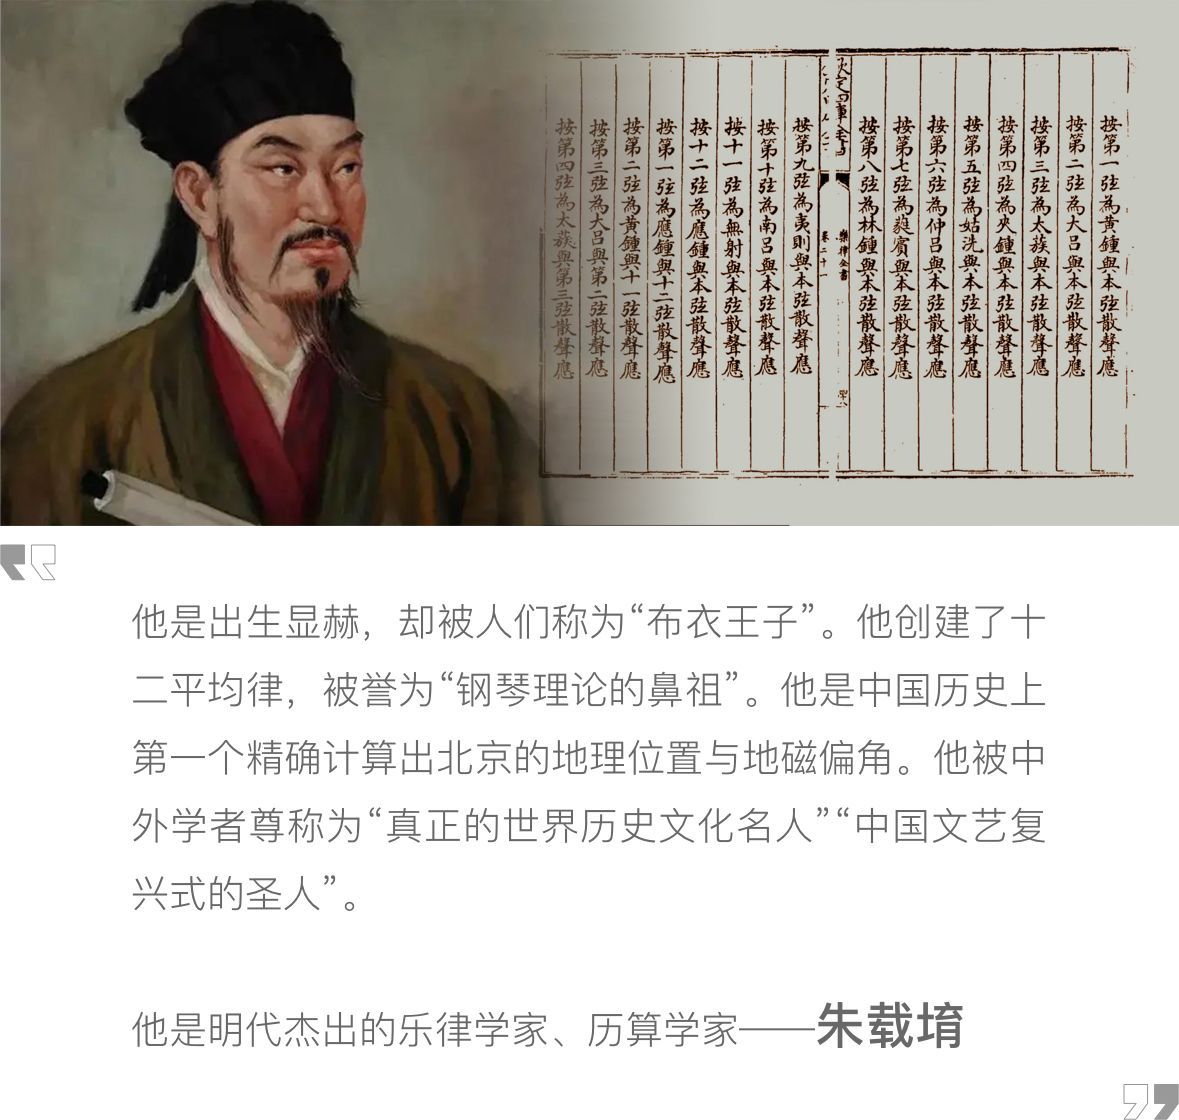 按第一弦為黃鍾與本弦散聲應
按第二弦為大呂與本弦散聲應
按第三弦為太蔟與本弦散聲應
按第四弦為夾鍾與本弦散聲應
按第五弦為姑洗與本弦散聲應
按第六弦為仲呂與本弦散聲應
按第七弦為蕤賓與本弦散聲應
按第八弦為林鍾與本弦散聲應
樂律全書
卷二十一
按第九弦為夷則與本弦散聲應
按第十弦為南呂與本弦散聲應
按十一弦為無射與本弦散聲應
按十二弦為應鍾與本弦散聲應
按第一弦為應鍾與十二弦散聲應
按第二弦為黃鍾與十一弦散聲應
按第三弦為大呂與第二弦散聲應
按第四弦為太蔟與第三弦散聲應
他是出生显赫，却被人们称为“布衣王子”。他创建了十
二平均律，被誉为“钢琴理论的鼻祖”。他是中国历史上
第一个精确计算出北京的地理位置与地磁偏角。他被中
外学者尊称为“真正的世界历史文化名人”“中国文艺复
兴式的圣人”。
他是明代杰出的乐律学家、历算学家——朱载堉